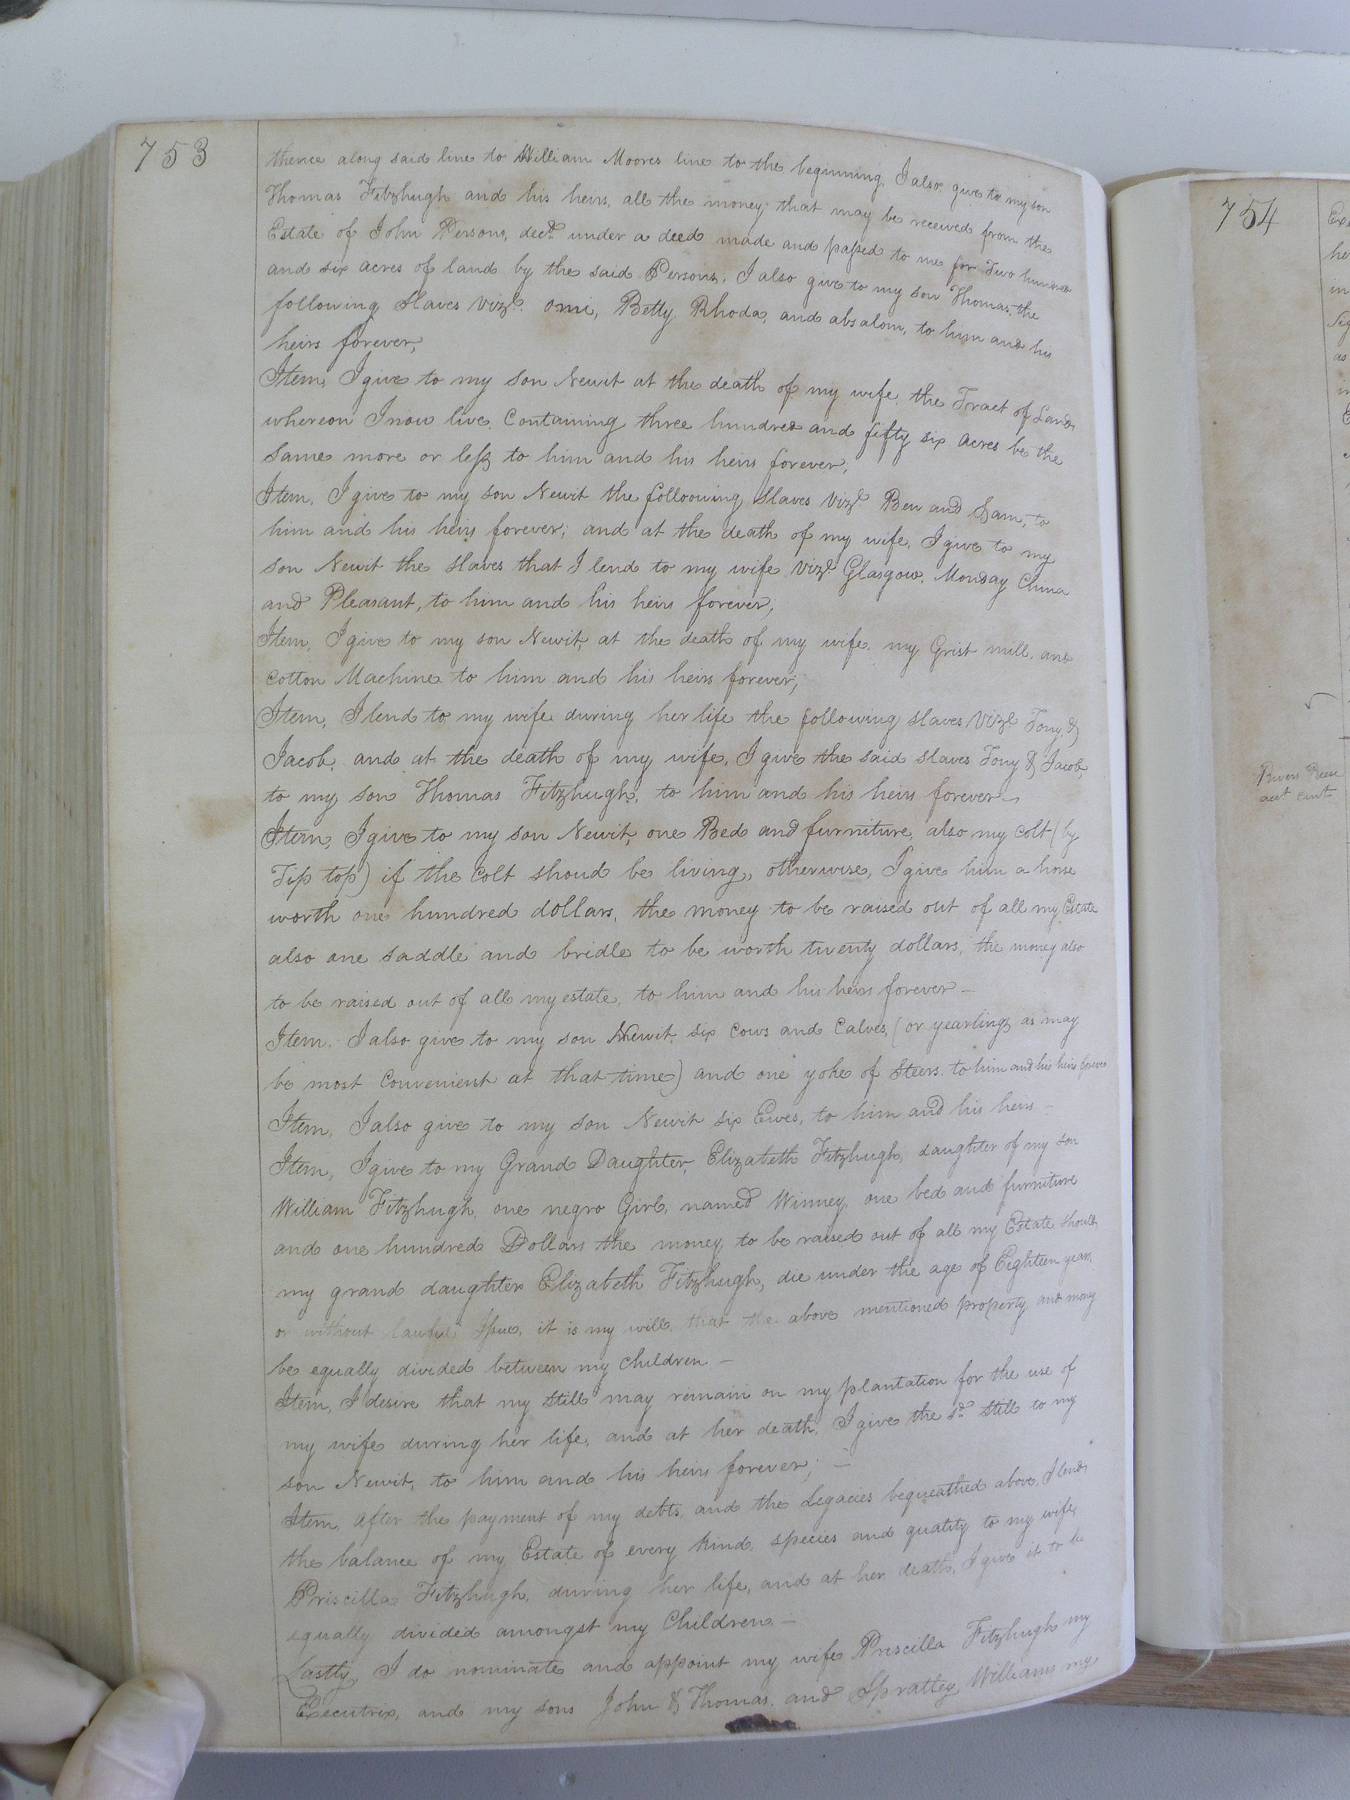 753
thence along said line to William Moores line to the beginning, I also give to my son
Thomas Fitzhugh and his heirs, all the money that may be received from the
Estate of John Persons, decd. under a deed made and passed to me for Two hundred
and six acres of land by the said Persons, I also give to my son Thomas, the
following slaves vizt. Omi, Betty Rhoda, and absalom, to him and his
heirs forever,
Item, I give to my son Newit at the death of my wife, the Tract of Land
whereon I now live, Containing three hundred and fifty six acres be the
same more or less to him and his heirs forever;
Item, I give to my son Newit the following slaves vizt. Ben and Sam, to
him and his heirs forever; and at the death of my wife, I give to my
son Newit the slaves that I lend to my wife vizt Glasgow, Monday China
and Pleasant, to him and his heirs forever;
Item, I give to my son Newit, at the death of my wife, my Grist mill, and
Cotton Machine to him and his heirs forever;
Item, I lend to my wife during her life the following slaves vizt Tony, &
Jacob, and at the death of my wife, I give the said slaves Tony & Jacob,
to my son Thomas Fitzhugh, to him and his heirs forever—
Item, I give to my son Newit, one Bed and furniture, also my colt (by
Tip top) if the Colt shoud be living, otherwise, I give him a horse
worth one hundred dollars, the money to be raised out of all my Estate
also one saddle and bridle to be worth twenty dollars, the money also
to be raised out of all my estate, to him and his heirs forever—
Item. I also give to my son Newit, six cows and Calves, (or yearlings as may
be most Convenient at that time) and one yoke of Steers. to him and his heirs forever
Item, I also give to my son Newit six Ewes, to him and his heirs—
Item, I give to my Grand Daughter, Elizabeth Fitzhugh, daughter of my son
William Fitzhugh, one negro Girl, named Winney, one bed and furniture
and one hundred Dollars the money to be raised out of all my Estate should
my grand daughter Elizabeth Fitzhugh, die under the age of Eighteen years,
or without lawful Issue, it is my will, that the above mentioned property and money
be equally divided between my children—
Item, I desire that my Still may remain on my plantation for the use of
my wife during her life, and at her death, I give the sd. Still to my
son Newit, to him and his heirs forever;—
Item, after the payment of my debts, and the Legacies bequeathed above, I lend
the balance of my Estate of every kind, species and quality to my wife
Priscilla Fitzhugh, during her life, and at her death, I give it to be
equally divided amongst my Children—
Lastly, I do nominate and appoint my wife Priscilla Fitzhugh my
Executrix, and my sons John & Thomas, and Spratley Williams my
754